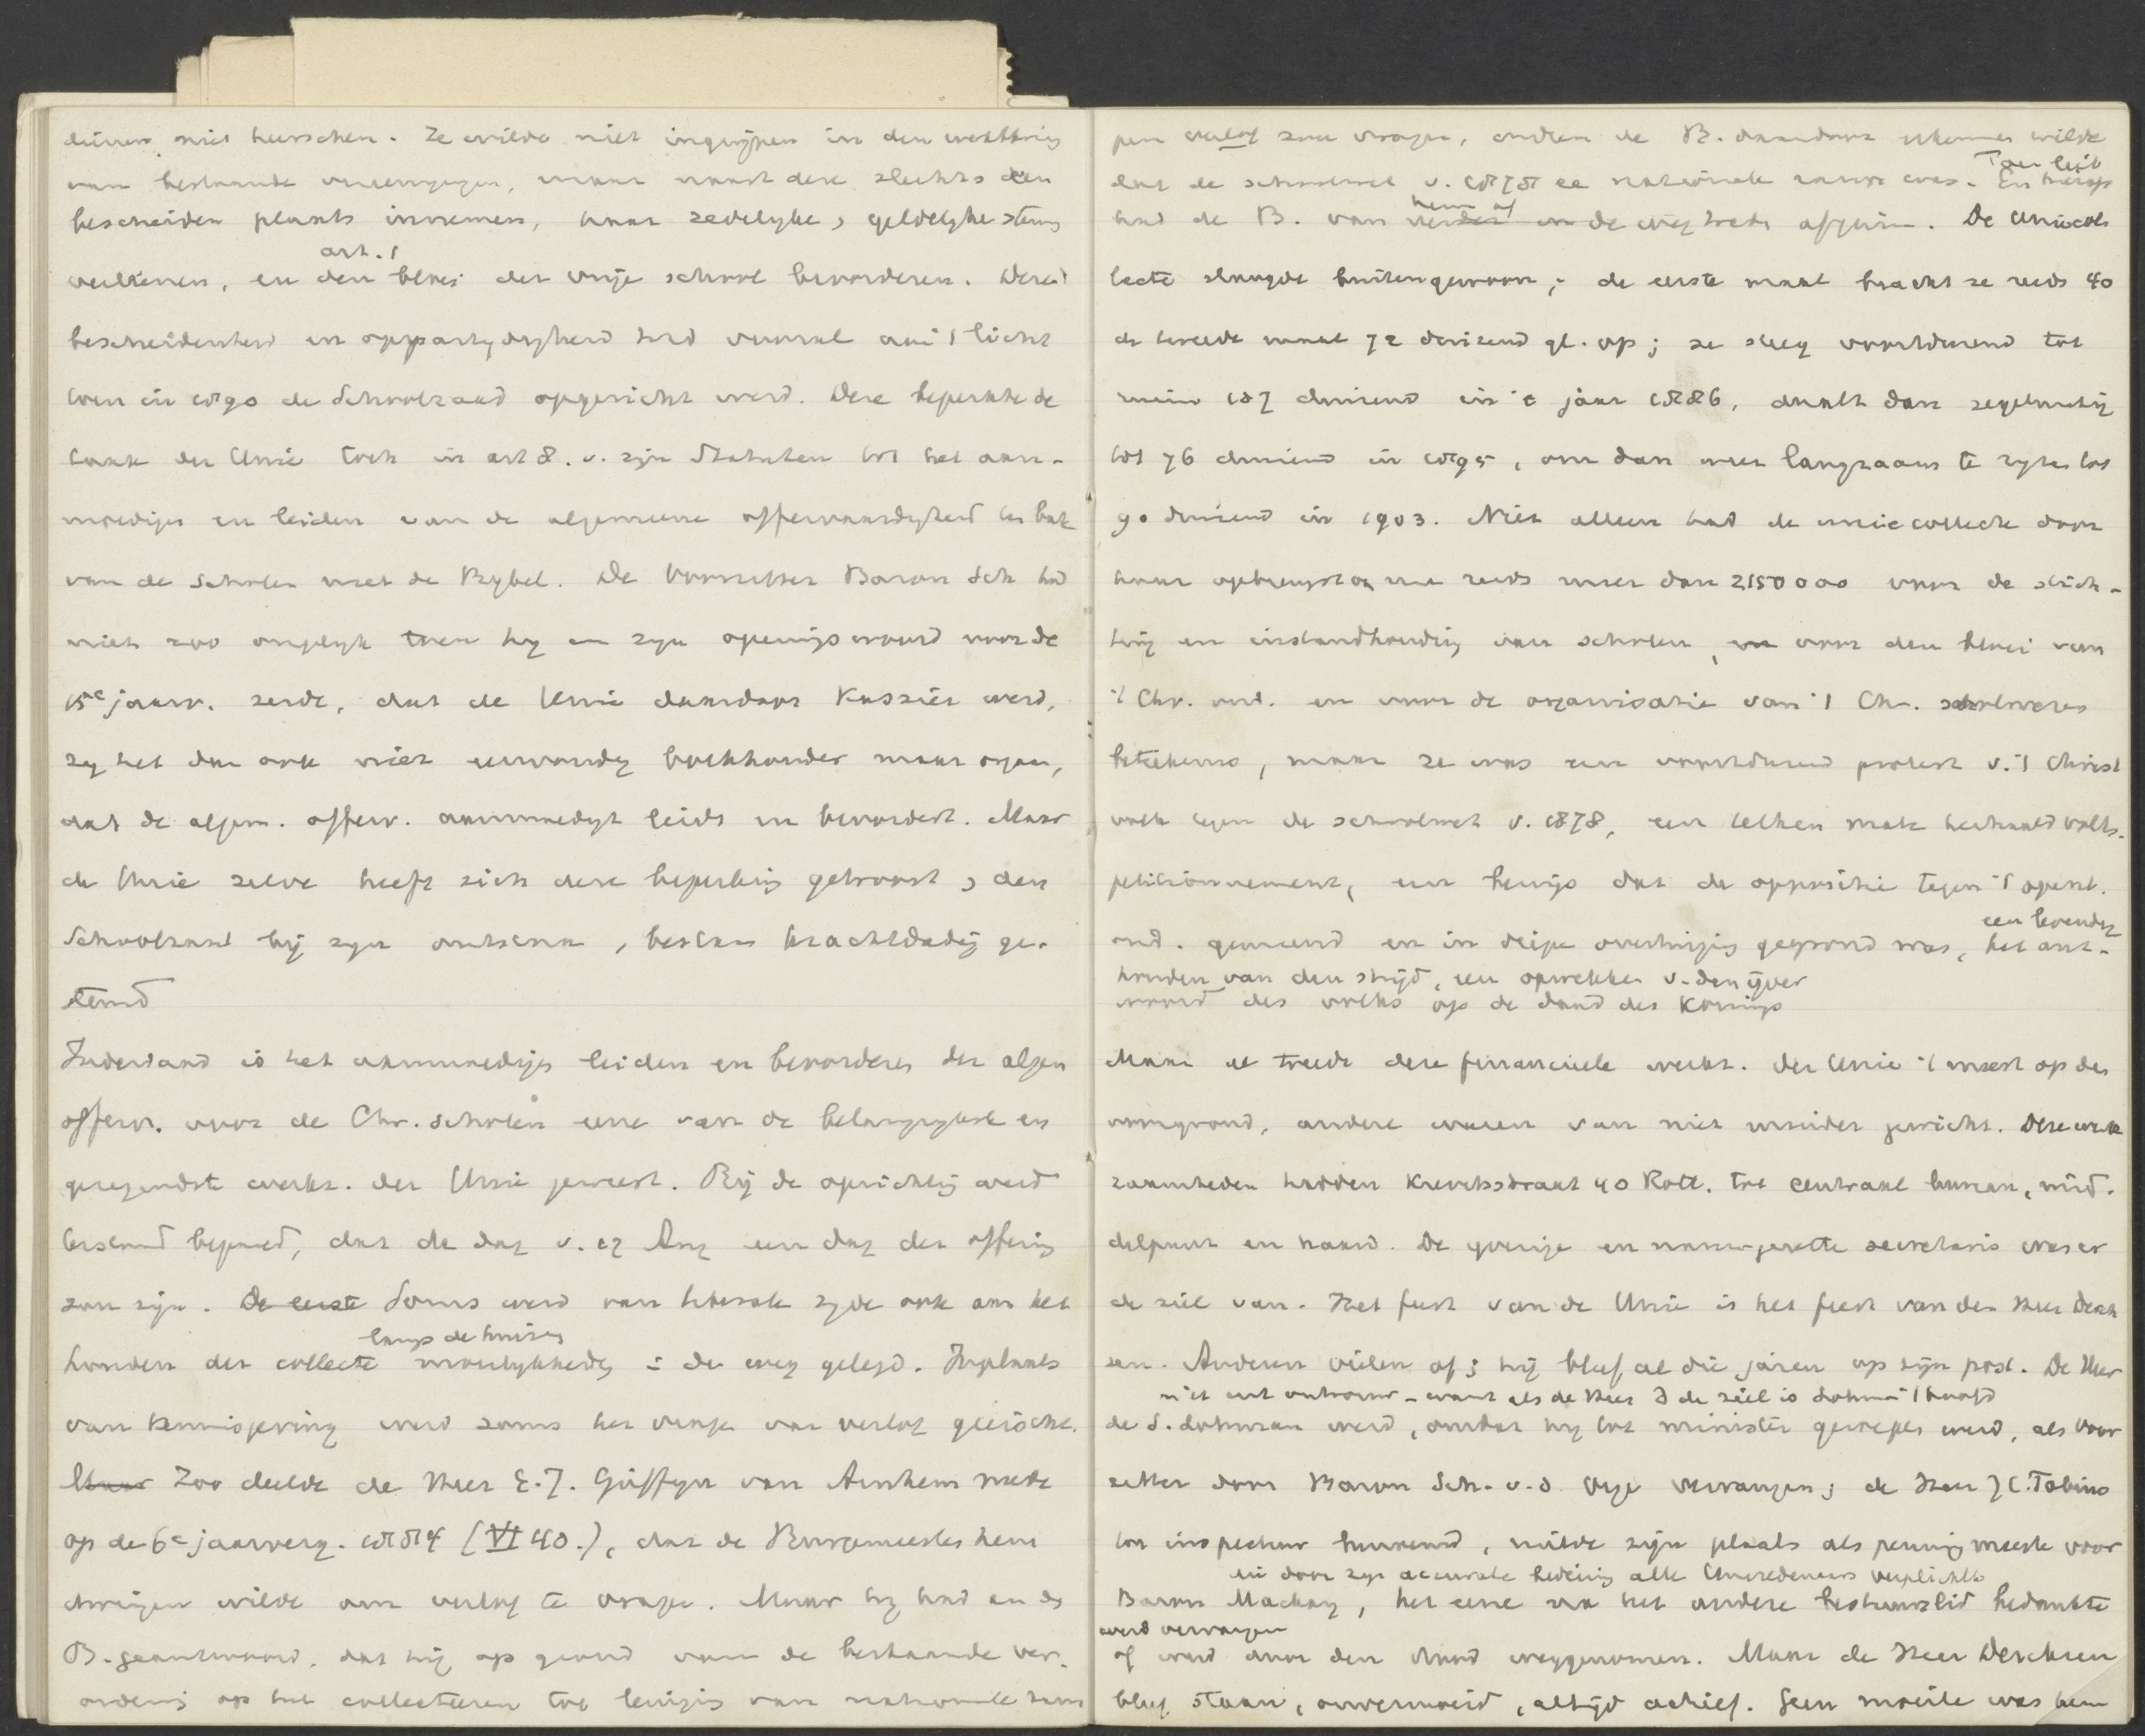 dienen niet heerschen. Ze wilde niet ingrijpen in den werkkring
van bestaande vereenigingen, maar naast deze slechts een
bescheiden plaats innemen, haar zedelyke & geldelyke steun
art. 1
verleenen, en den bloei der vrije school bevorderen. Deze
bescheidenheid en onpartydigheid trad vooral in 't licht
toen in 1890 de Schoolraad opgericht werd. Deze beperkte de
taak der Unie toch in art 8. v. zijn Statuten tot het aan-
moedigen en leiden van de algemeene offervaardigheid ten bate
van de Scholen met de Bybel. De Voorzitter Baron Sch had
niet zoo ongelyk toen hy in zyn openingswoord voor de
15e jaarv. zeide, dat de Unie daardoor Kassier werd,
zy het dan ook niet eenvoudig boekhouder maar orgaan,
dat de algem. offerv. aanmoedigt leidt en bevordert. Maar
de Unie zelve heeft zich deze beperking getroost & den
Schoolraad bij zijn ontstaan & bestaan krachtdadig ge-
steund
Inderdaad is het aanmoedigen leiden en bevorderen der algem
offerv. voor de Chr. scholen eene van de belangrykste en
gezegendste werkz. der Unie geweest. Bij de oprichting werd
terstond bepaald, dat de dag v. 17 Aug een dag der offering
zou zijn. De eerste Soms werd van liberale zyde ook aan het
langs de huizen
houden der collecte moeilykheden in de weg gelegd. Inplaats
van kennisgeving werd soms het vragen van verlof geëischt.
Maar Zoo deelde de Heer E.J. Güffyn van Arnhem mede
op de 6e jaarverg. 1884 (VI 40.), dat de Burgemeester hem
dwingen wilde om verlof te vragen. Maar hy had en de
B. geantwoord, dat hij op grond van de bestaande ver-
ordening op het collecteeren tot leniging van nationale ram
pen verlof zou vragen, indien de B. daardoor erkennen wilde
Toen liet
dat de schoolwet v. 1878 ee nationale ramp was. En hierop
hem af
had de B. van verder in de weg treden afgezien. De Uniecol
lecte slaagde buitengewoon; de eerste maal bracht ze reeds 40
de tweede maal 72 duizend gl. op; ze steeg voortdurend tot
ruim 127 duizend in 't jaar 1886, daalt dan regelmatig
tot 76 duizend in 1895, om dan weer langzaam te ryzen tot
90 duizend in 1903. Niet alleen had de uniecollecte door
haar opbrengst nu reeds meer dan 2150000 voor de stich-
ting en instandhouding van scholen, voor den bloei van
't Chr. ond. en voor de organisatie van 't Chr. schoolwezen
beteekenis, maar ze was een voortdurend protest v. 't Christ
volk tegen de schoolwet v. 1878, een telken male herhaald volks-
petitionnement, een bewijs dat de oppositie tegen 't openb.
een levendig
ond. gemeend en in diepe overtuiging gegrond was, het ant-
houden van den strijd, een opwekken v. den ijver
woord des volks op de daad des Konings
Maar al treedt deze financieele werkz. der Unie 't meest op den
voorgrond, andere waren van niet minder gewicht. Deze werk
zaamheden hadden Kruiskade 40 Rott. tot centraal bureau, mid-
delpunt en haard. De yverige en nauwgezette secretaris was er
de ziel van. Het feest van de Unie is het feest van den Heer Derk
sen. Anderen vielen af; hij bleef al die jaren op zijn post. De Heer
niet uit ontrouw - want als de Heer D de ziel is Lohman 't hoofd
de S. Lohman werd, omdat hy tot minister geroepen werd, als Voor
zitter door Baron Sch. v.d. Oye vervangen; de Heer J.C. Tobias
tot inspecteur benoemd, ruilde zijn plaats als penningmeester voor
en door zyn accurate leiding alle Unieredenaars verplichtte
Baron Mackay, het eene na het andere bestuurslid bedankte
werd vervangen
of werd door den dood weggenomen. Maar de Heer Derksen
bleef staan, onvermoeid, altijd actief. Geen moeite was hem